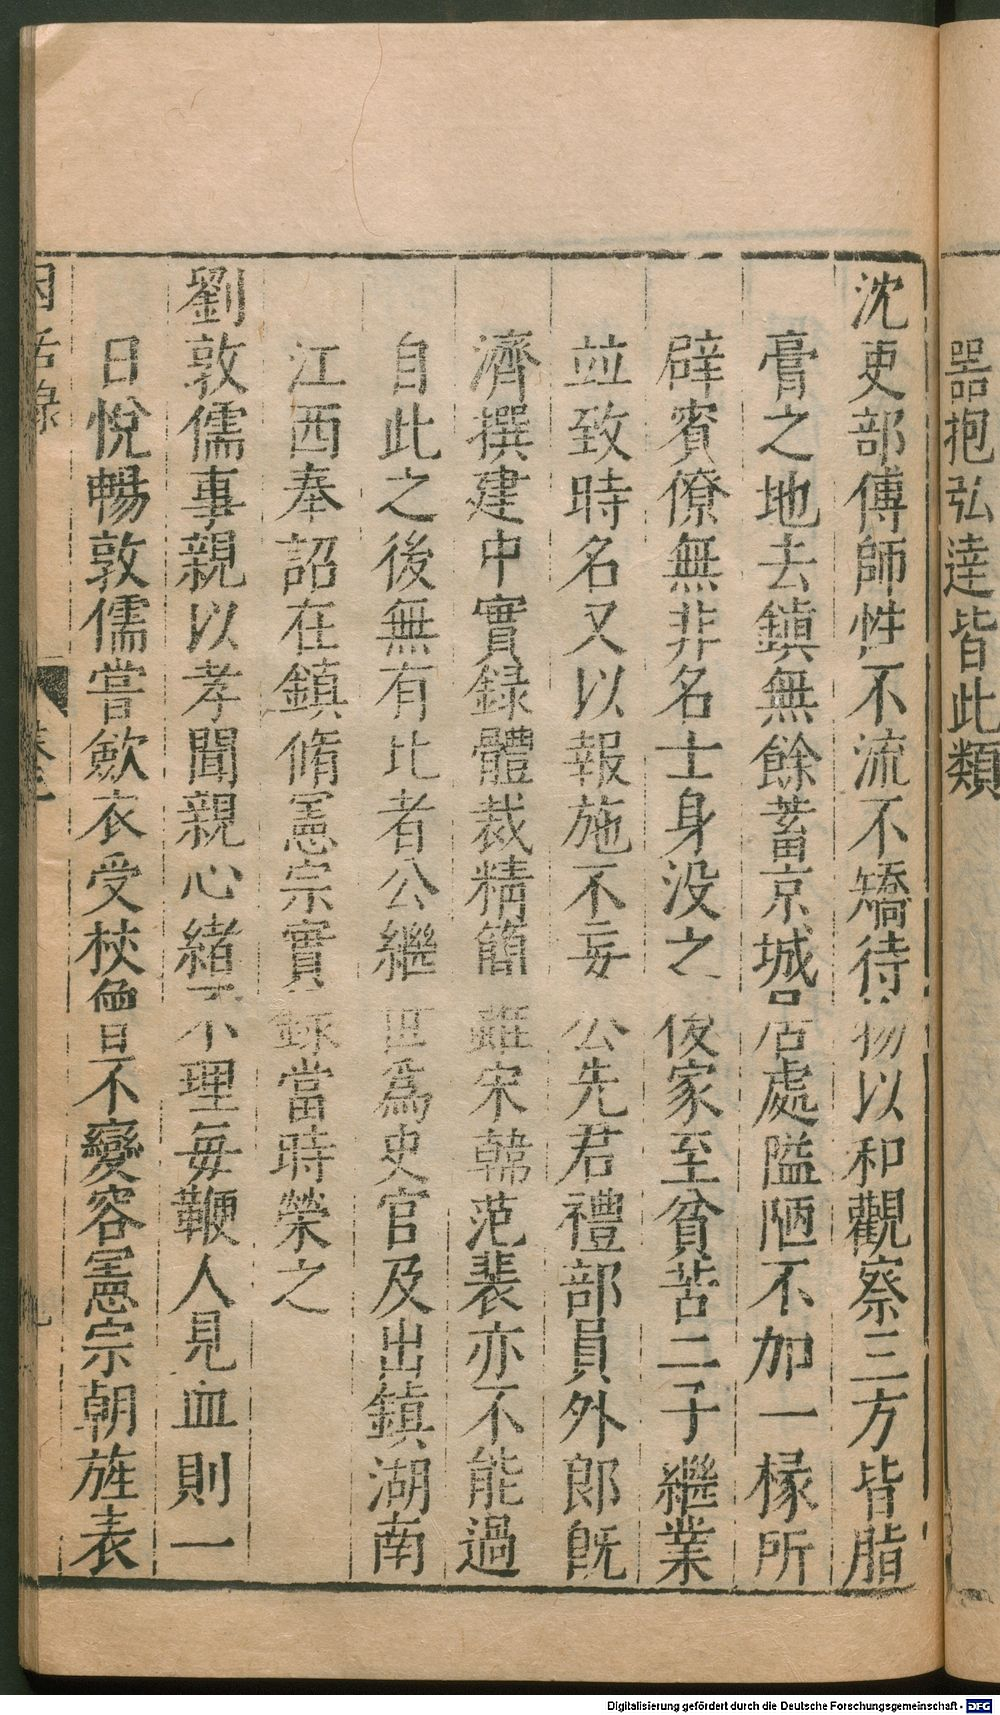 器抱弘達皆此類
沈吏部傅師性不流不矯待物以和觀察三方皆脂
膏之地去鎮無餘蓄京城居處隘陋不加一椽所
辟賓僚無非名士身没之後家至貧苦二子繼業
並致時名又以報施不妄公先君禮部員外郎旣
濟撰建中實錄體裁精簡雖宋韓范裴亦不能過
自此之後無有比者公繼世爲史官及出鎮湖南
江西奉詔在鎮脩憲宗實錄當時榮之
劉敦儒事親以孝聞親心緒不理每鞭人見血則一
日悅暢敦儒嘗斂衣受杖曾不變容憲宗朝旌表
因話錄
Digitalisierung gefördert durch die Deutsche Forschungsgemeinschaft - DFG